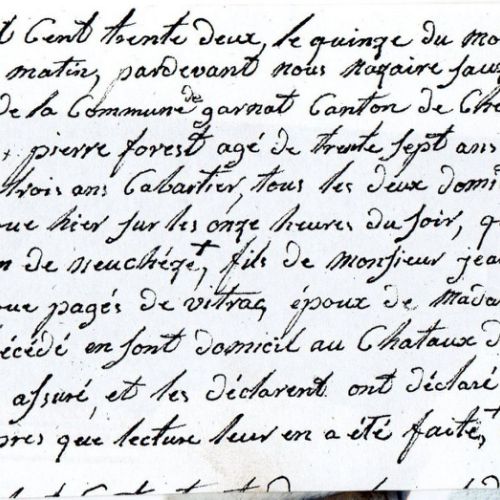 t Cent trente deux, le quinze du mo
matin, pardevant nous Nazaire Sauz
de la Commune de garnat Canton de Che
pierre forest agé de trente sept ans
trois ans Cabartier, tous les deux domi
que hier sur les onze heures du soir, qu
n de neuchéze+, fils de monsieur jea
que pagés de vitrac, époux de Mada
écédé en sont domicil au Chataux d
assuré, et les déclarent ont déclaré
pres que lecture leur en a été faite,